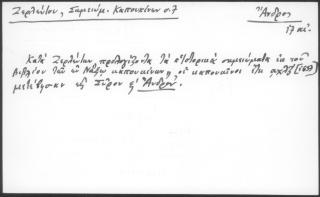 Ζερλέντου, Σημειώμ. Καπουκίνων σ. 7
Ἄνδρος
17 αἰ.
Κατὰ Ζερλέντην προλογίζοντα τὰ ἱστορικὰ σημειώματα ἐκ τοῦ
βιβλίου τῶν ἐν Νάξῳ καπουκίνων, οἱ καπουκῖνοι ἔτει (1657)
μετέβησαν εἰς Σῦρον Ἄνδρον.